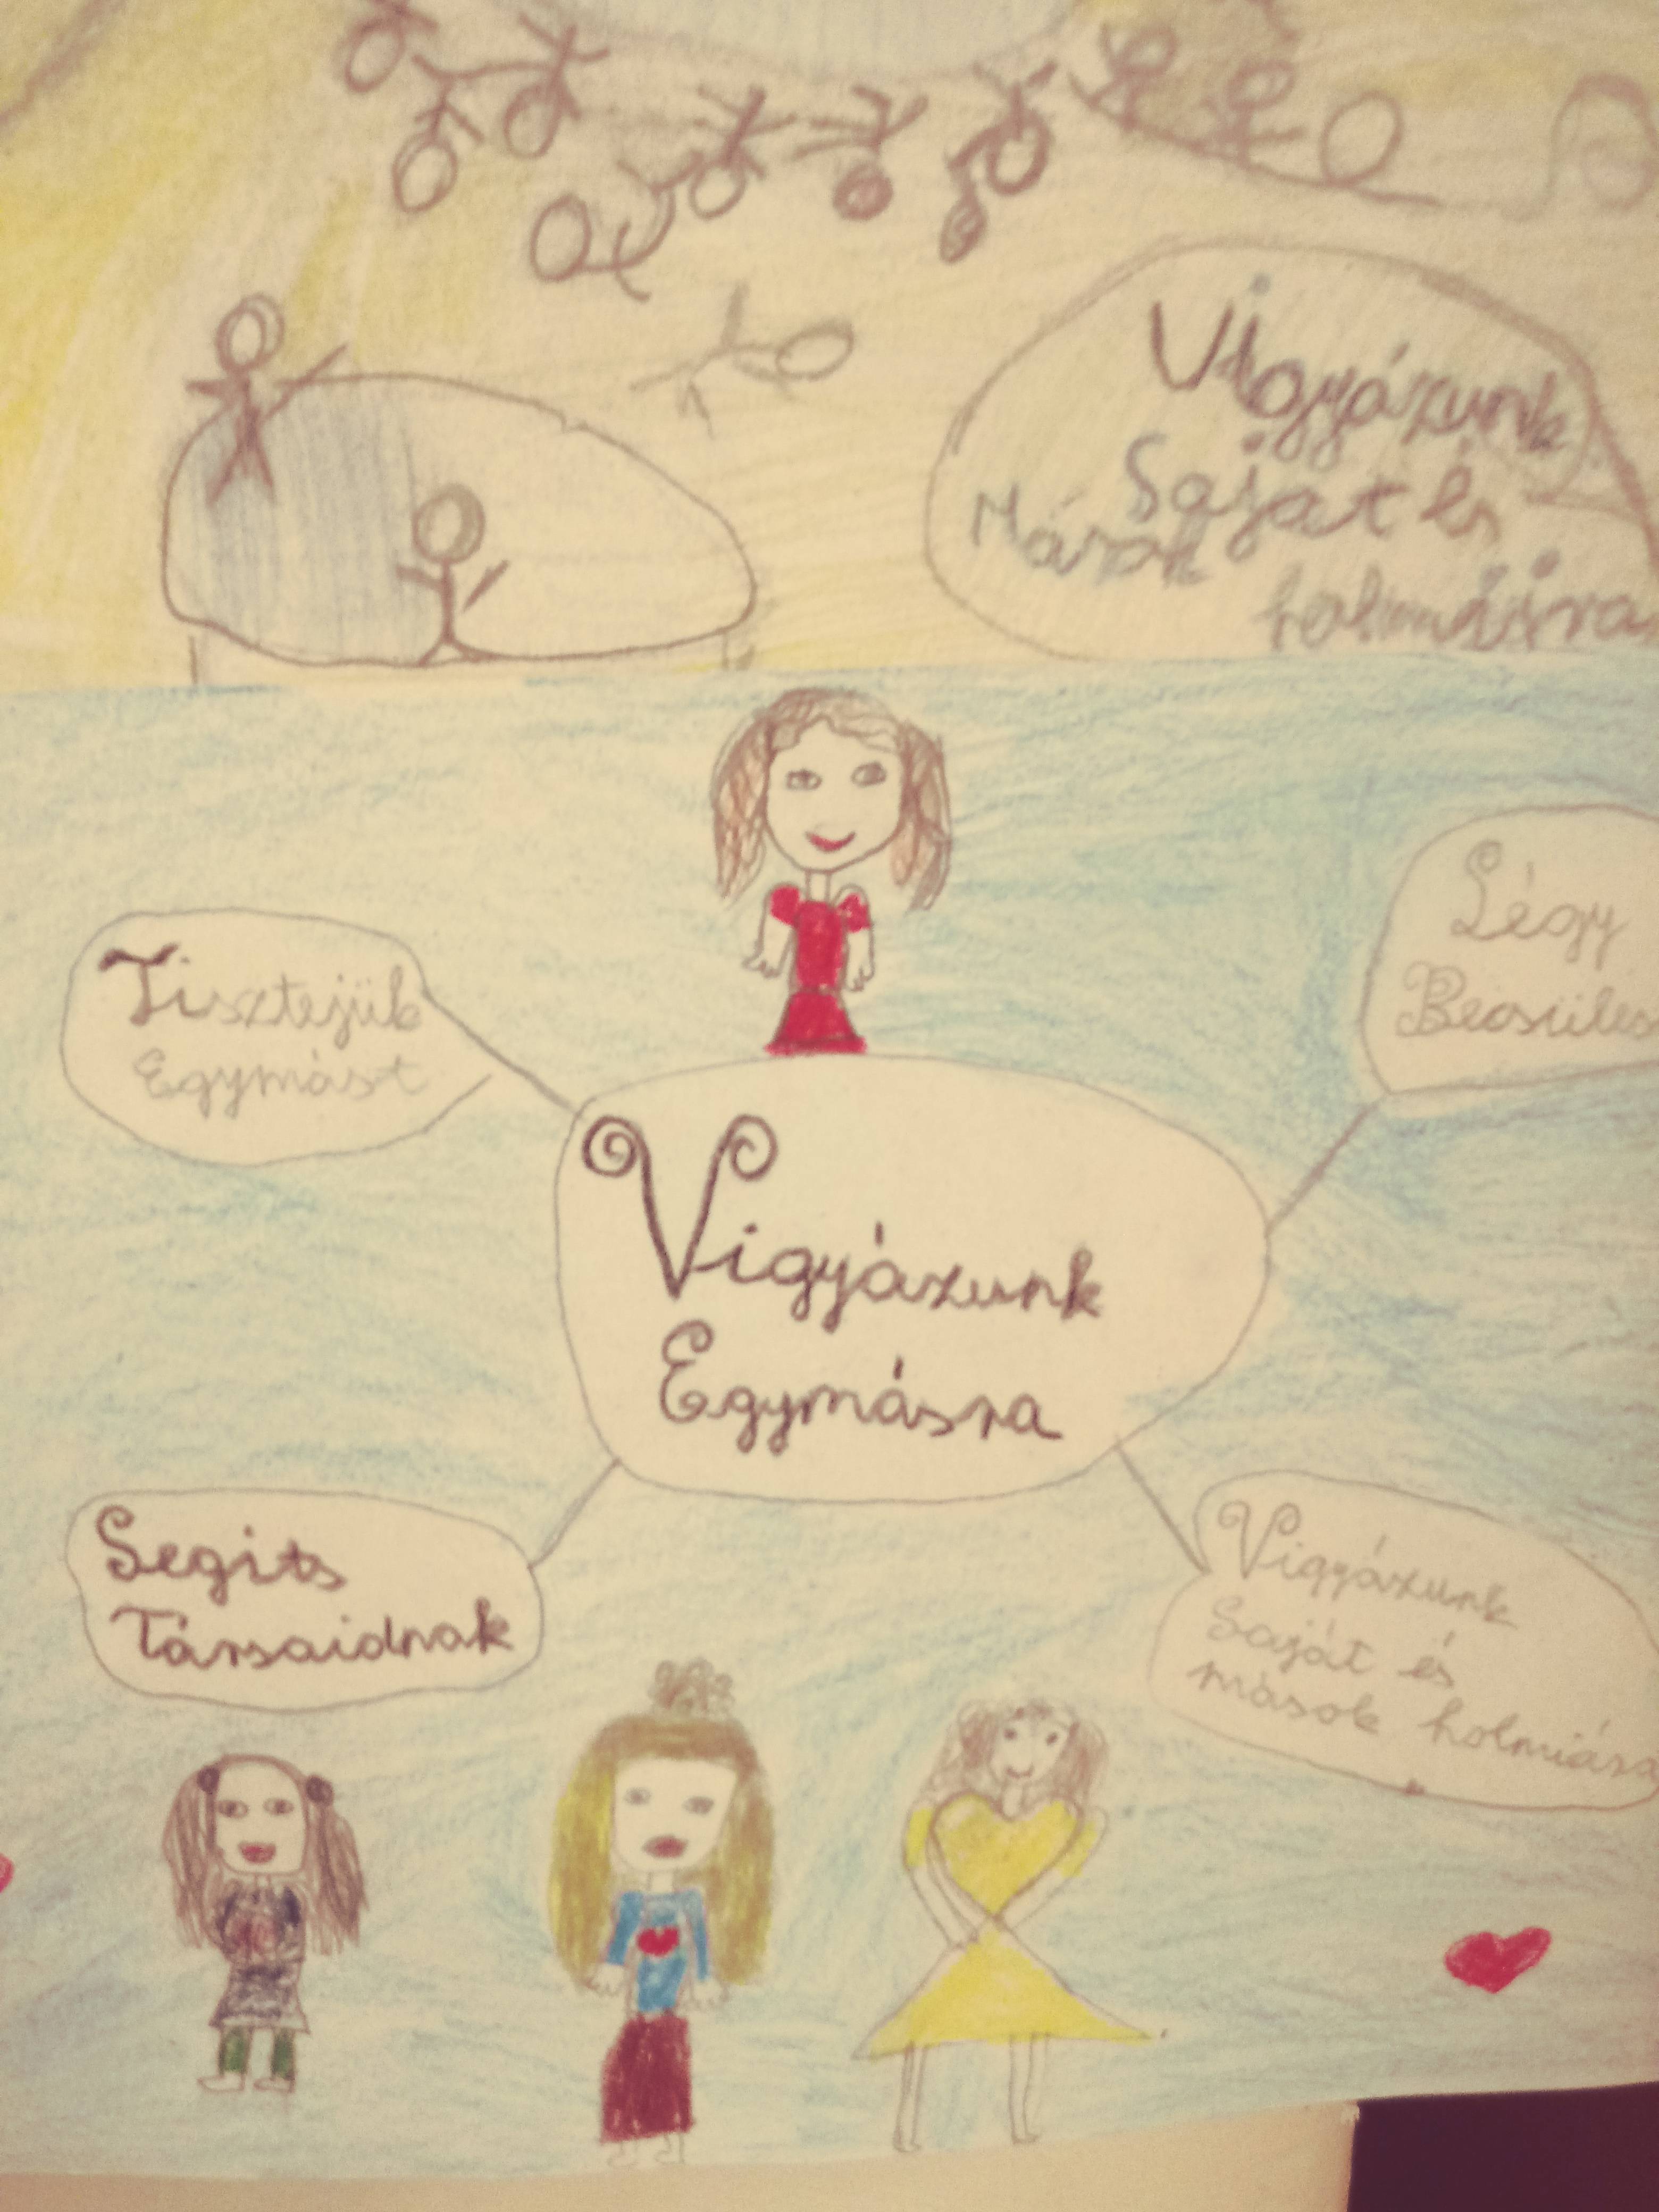 Vigyázunk
Saját és
Mások
holmijára
Tisztejük
Egymást
Légy
Becsüles
Vigyázunk
Egymásra
Segits
Társaidnak
Vigyázunk
Saját és
mások holmiára